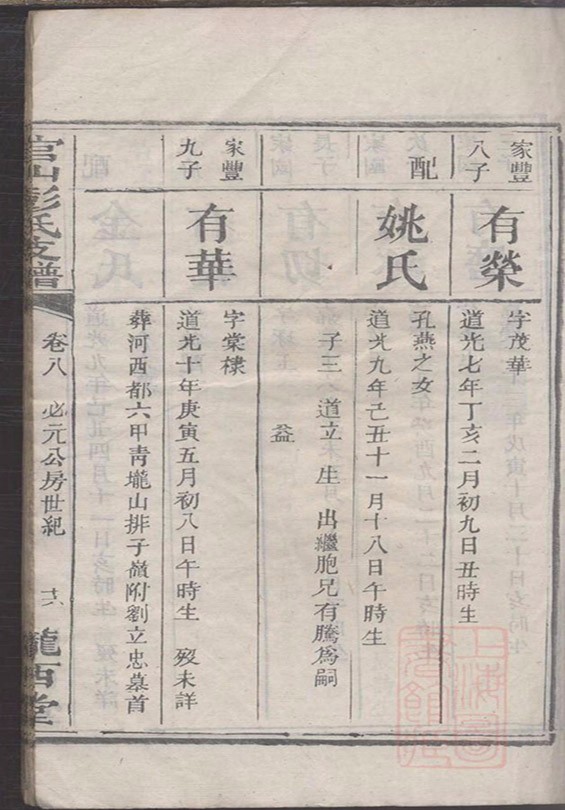 家豐
八子
有榮
字茂華
道光七年丁亥二月初九日丑時生
配
姚氏
孔燕之女
道光九年己丑十一月十八日午時生
子三 道立 生 出繼胞兄有騰為嗣
益
家豐
九子
有華
字棠棣
道光十年庚寅五月初八日午時生 歿未詳
葬河西都六甲靑壠山排子嶺附劉立忠墓首
官山彭氏支譜
卷八 必元公房世紀
隴西堂
上海圖書館藏